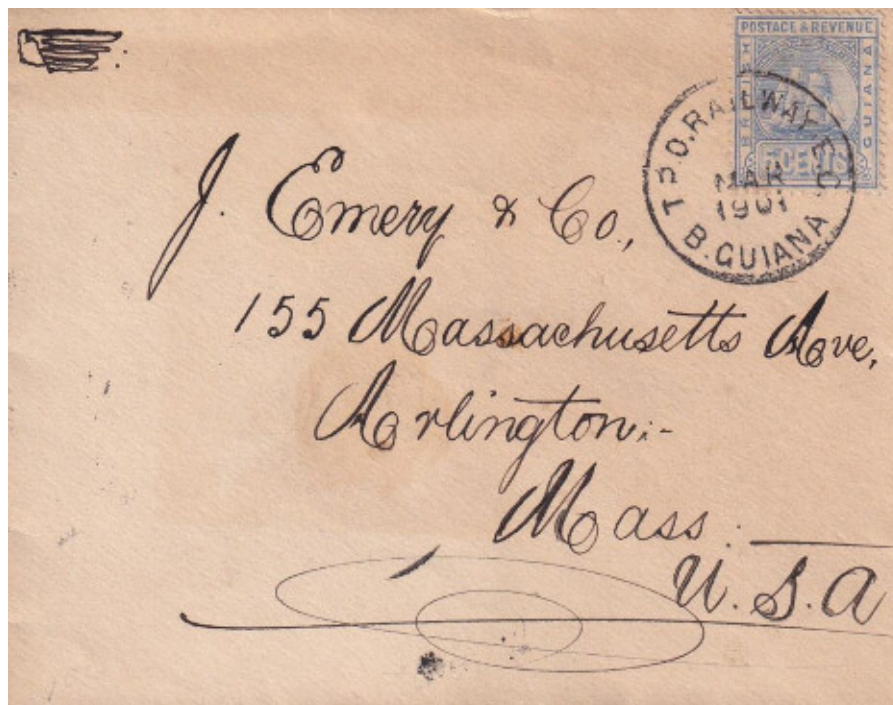 POSTAGE & REVENUE
BRITISH
GUIANA
5 CENTS
T.P.O. RAILWAY E.C.
MAR
1901
B. GUIANA
J. Emery & Co.,
155 Massachusetts Ave,
Arlington:-
Mass:
U.S.A